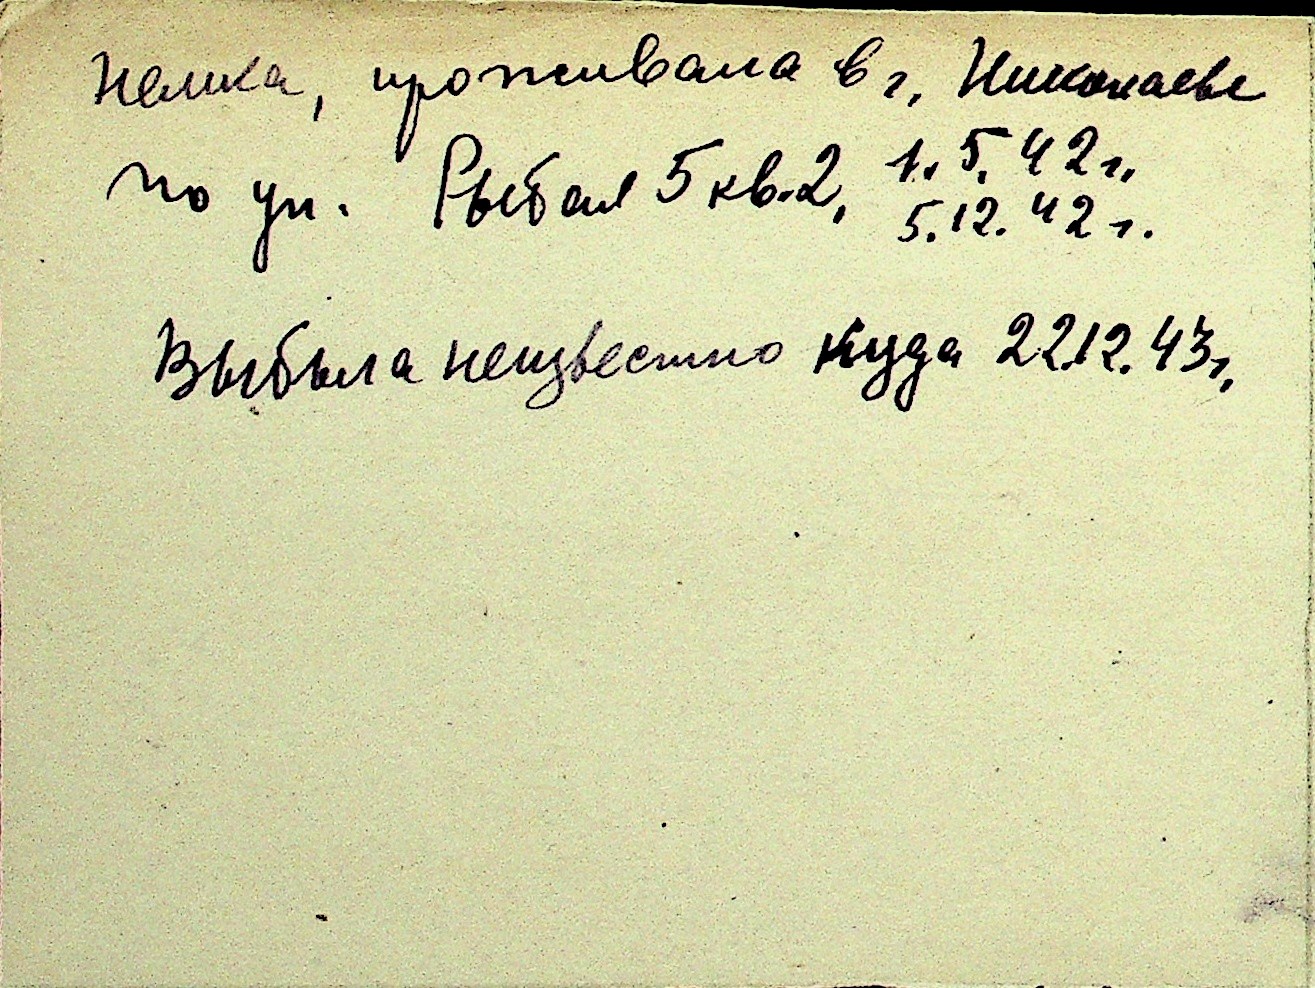 немка, проживала в г. Николаеве
по ул. Рыбая 5 кв. 2, 1.5.42 г.
5.12.42 г.
Выбыла неизвестно куда 22.12.43 г.